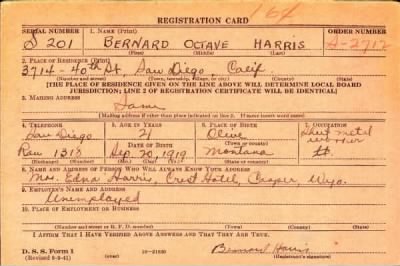 REGISTRATION CARD
164
SERIAL NUMBER 1. NAME (Print) ORDER NUMBER
S 201 BERNARD OCTAVE HARRIS S-2712
(First) (Middle) (Last)
2. PLACE OF RESIDENCE (Print)
3714 - 40th St, San Diego Calif
(Number and street) (Town, township, village, or city) (County) (State)
[THE PLACE OF RESIDENCE GIVEN ON THE LINE ABOVE WILL DETERMINE LOCAL BOARD
JURISDICTION; LINE 2 OF REGISTRATION CERTIFICATE WILL BE IDENTICAL]
3. MAILING ADDRESS
Same
[Mailing address if other than place indicated on line 2. If same insert word same]
4. TELEPHONE 5. AGE IN YEARS 6. PLACE OF BIRTH 7. OCCUPATION
San Diego 21 Olive Sheet metal
DATE OF BIRTH (Town or county)
Ran 1317 Sep 20, 1919 Montana
(Exchange) (Number) (Mo.) (Day) (Yr.) (State or country)
8. NAME AND ADDRESS OF PERSON WHO WILL ALWAYS KNOW YOUR ADDRESS
Mrs. Edna Harris, Crest Hotel, Casper, Wyo.
9. EMPLOYER'S NAME AND ADDRESS
Unemployed
10. PLACE OF EMPLOYMENT OR BUSINESS
(Number and street or R. F. D. number) (Town) (County) (State)
I AFFIRM THAT I HAVE VERIFIED ABOVE ANSWERS AND THAT THEY ARE TRUE.
D. S. S. Form 1 16-21630 Bernard Harris
(Registrant's signature)